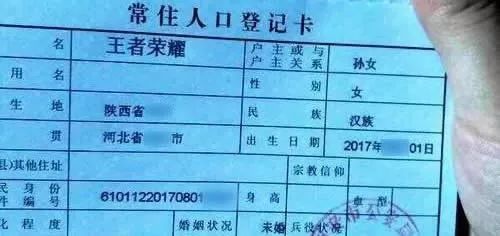 常住人口登记卡
名 王者荣耀 户主或与户主关系 孙女
用名 性别 女
生地 陕西省 民族 汉族
贯 河北省 市 出生日期 2017年 01日
县)其他住址 宗教信仰
民身份件编号 61011220170801 身高 血型
化程度 婚姻状况 未婚 兵役状况
市公安局